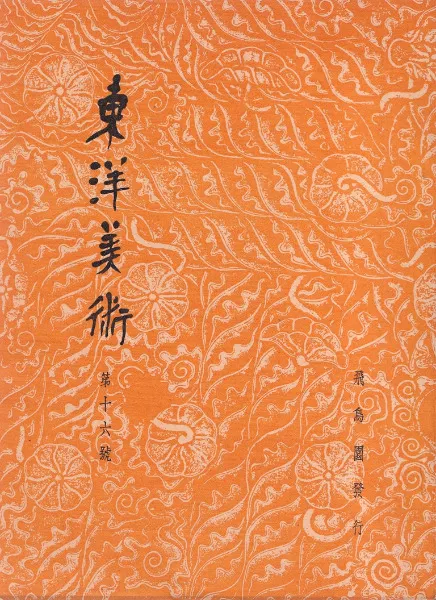 東洋美術
第十六號
飛鳥園發行